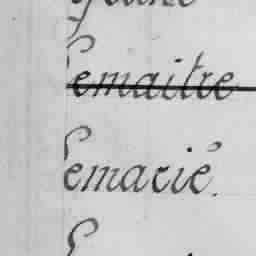 Lemaitre
Lemarié.